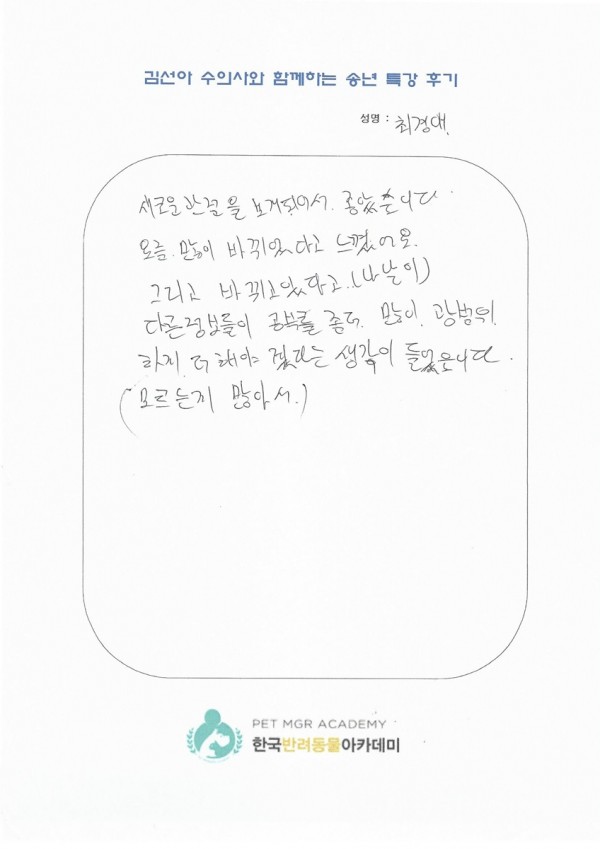 김선아 수의사와 함께하는 송년 특강 후기
성명 : 최경애
새로운 한걸을 보게되어서. 좋았습니다.
요즘. 많이 바뀌었다고 느꼈어요.
그리고 바뀌고있다고.(나날이)
다른정보들이 공부를 좀더. 많이. 광범위.
하게. 더해야 겠다는 생각이 들었습니다.
(모르는게 많아서.)
PET MGR ACADEMY
한국반려동물아카데미